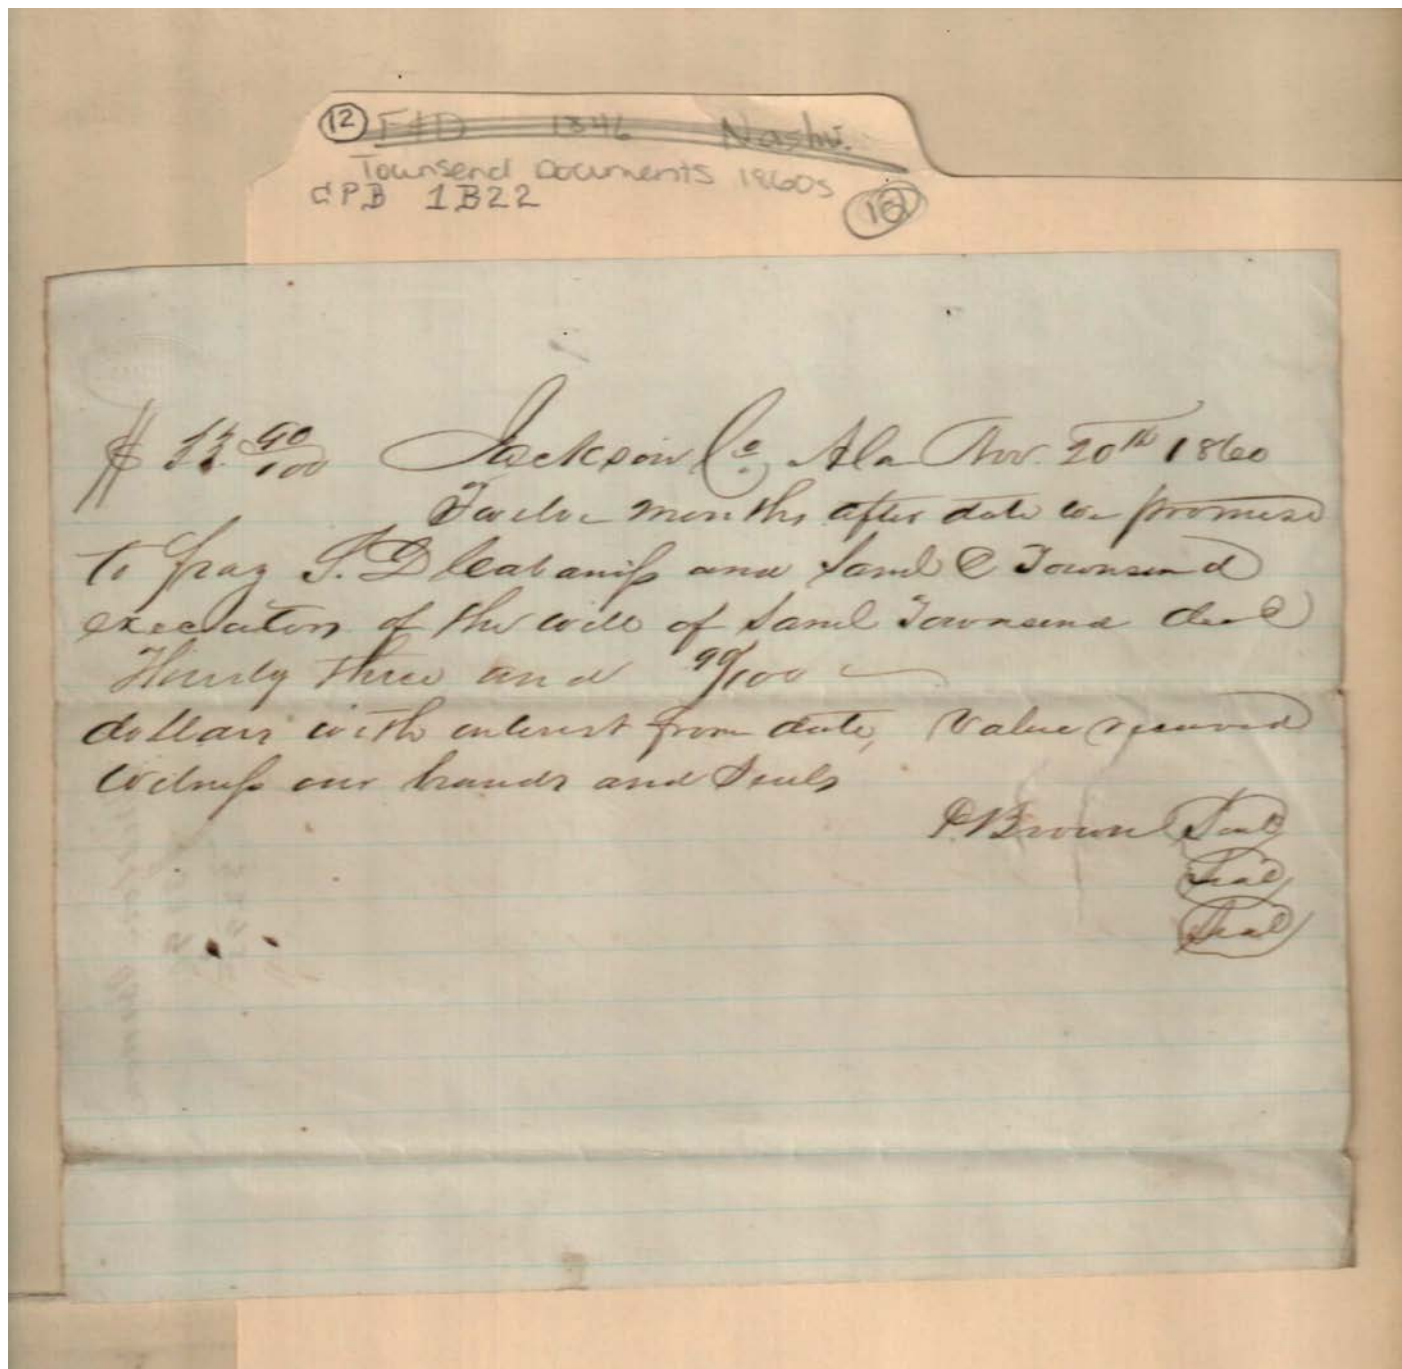 12 F+D 1846 Nashv.
Townsend Documents 1860s
CPB 1B22
18
$ 33. 90/100 Jackson Co. Ala Nov. 20th 1860
Twelve months after date we promise
to pay S. D Cabaniss and Saml C Townsend
executors of the will of Saml Townsend decd
three and 90/100
dollars with interest from date, Value received
Witness our hands and Seals
P. Brown Seal
Seal
Seal